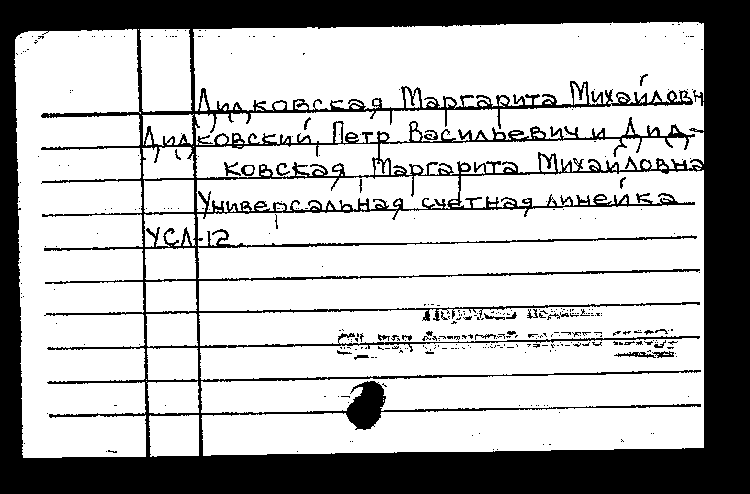 Дидковская, Маргарита Михайловн
Дидковский, Петр Васильевич и Дид-
ковская, Маргарита Михайловна
Универсальная счетная линейка
УСЛ-12.